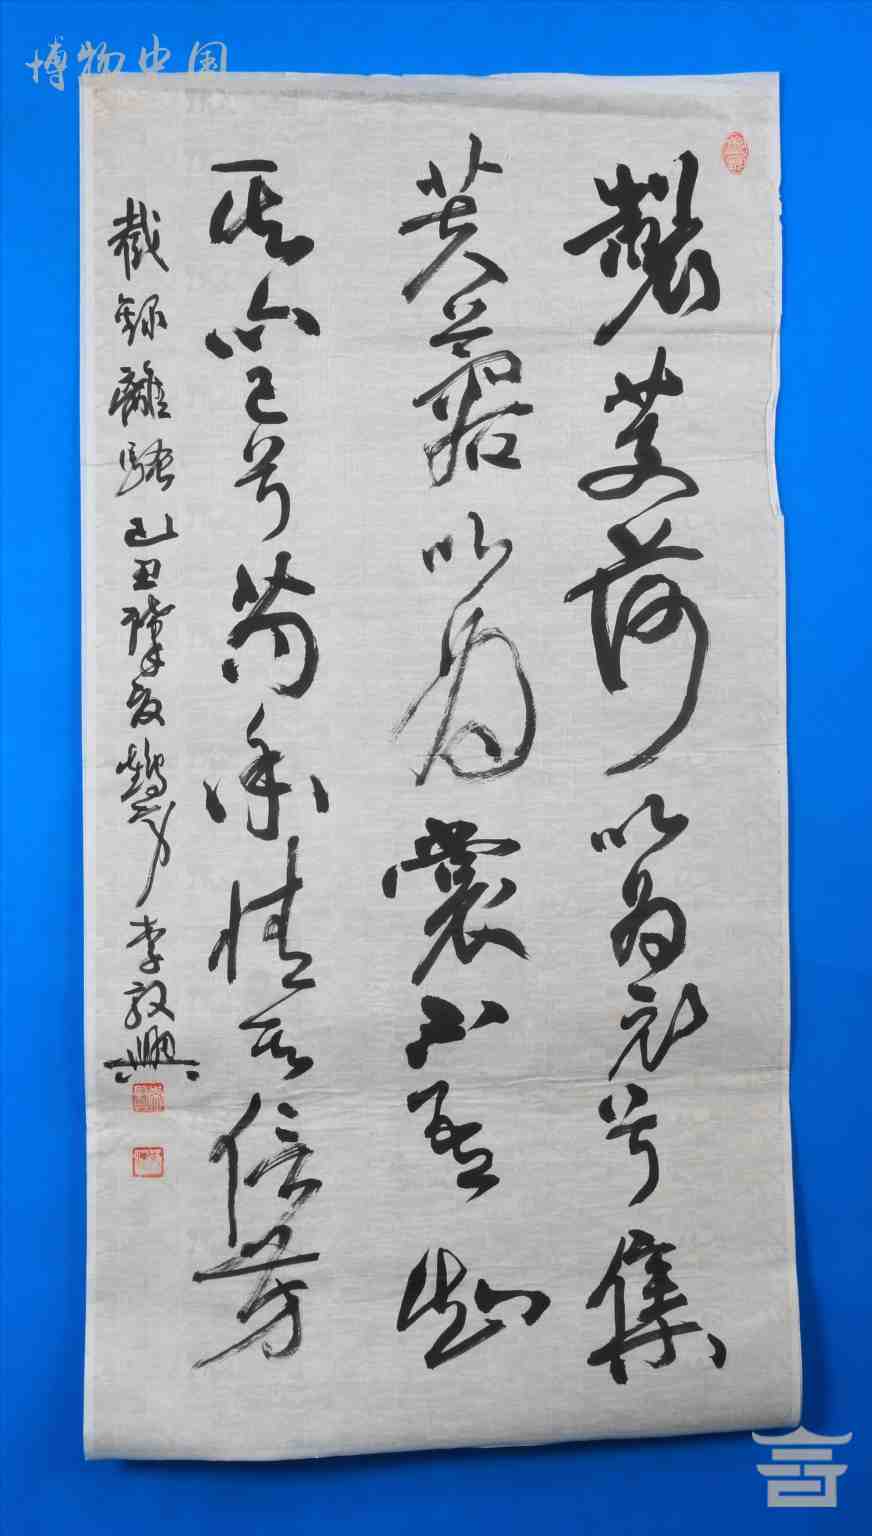 博物中国
製芰荷以為衣兮集
芙蓉以為裳不吾知
其亦已兮苟余情其信芳
截録離騷己丑 李敦興